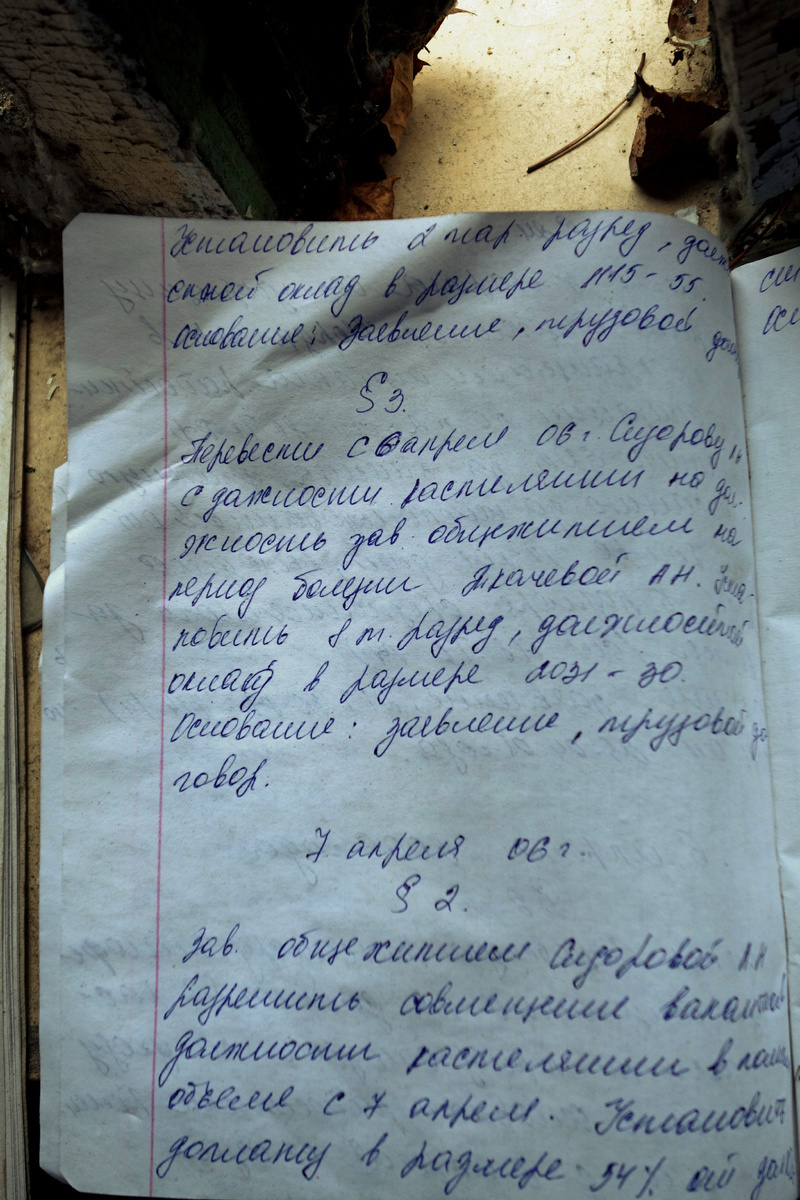 Установить 2 тар. разряд, долж
стной оклад в размере 1115-55.
основание: Заявление, трудовой дого
§ 3.
Перевести с 6 апреля 06 г. Сидорову АН
с должности кастелянши на дол-
жность зав. общежитием на
период болезни Ткачевой А.Н. Уста-
новить 8 т. разряд, должностной
оклад в размере 2031-30.
Основание: заявление, трудовой до
говор.
7 апреля 06 г.
§ 2.
Зав. общежитием Сидоровой А.Н
разрешить совмещение вакантной
должности кастелянши в полном
объеме с 7 апреля. Установить
доплату в размере 54% от долж